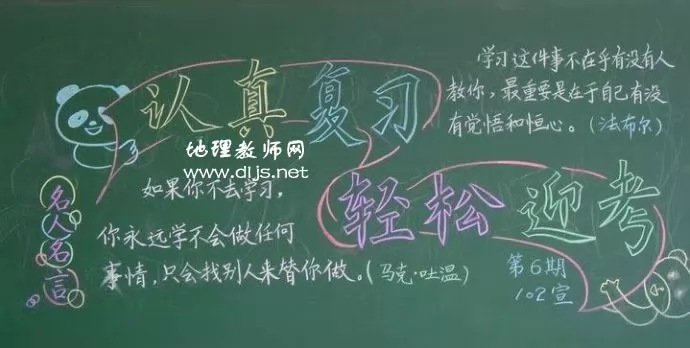 认真复习
轻松迎考
学习这件事不在乎有没有人
教你，最重要是在于自己有没
有觉悟和恒心。（法布尔）
地理教师网
www.dljs.net
名人名言
如果你不去学习，
你永远学不会做任何
事情，只会找别人来替你做。（马克·吐温）
第6期
102宣